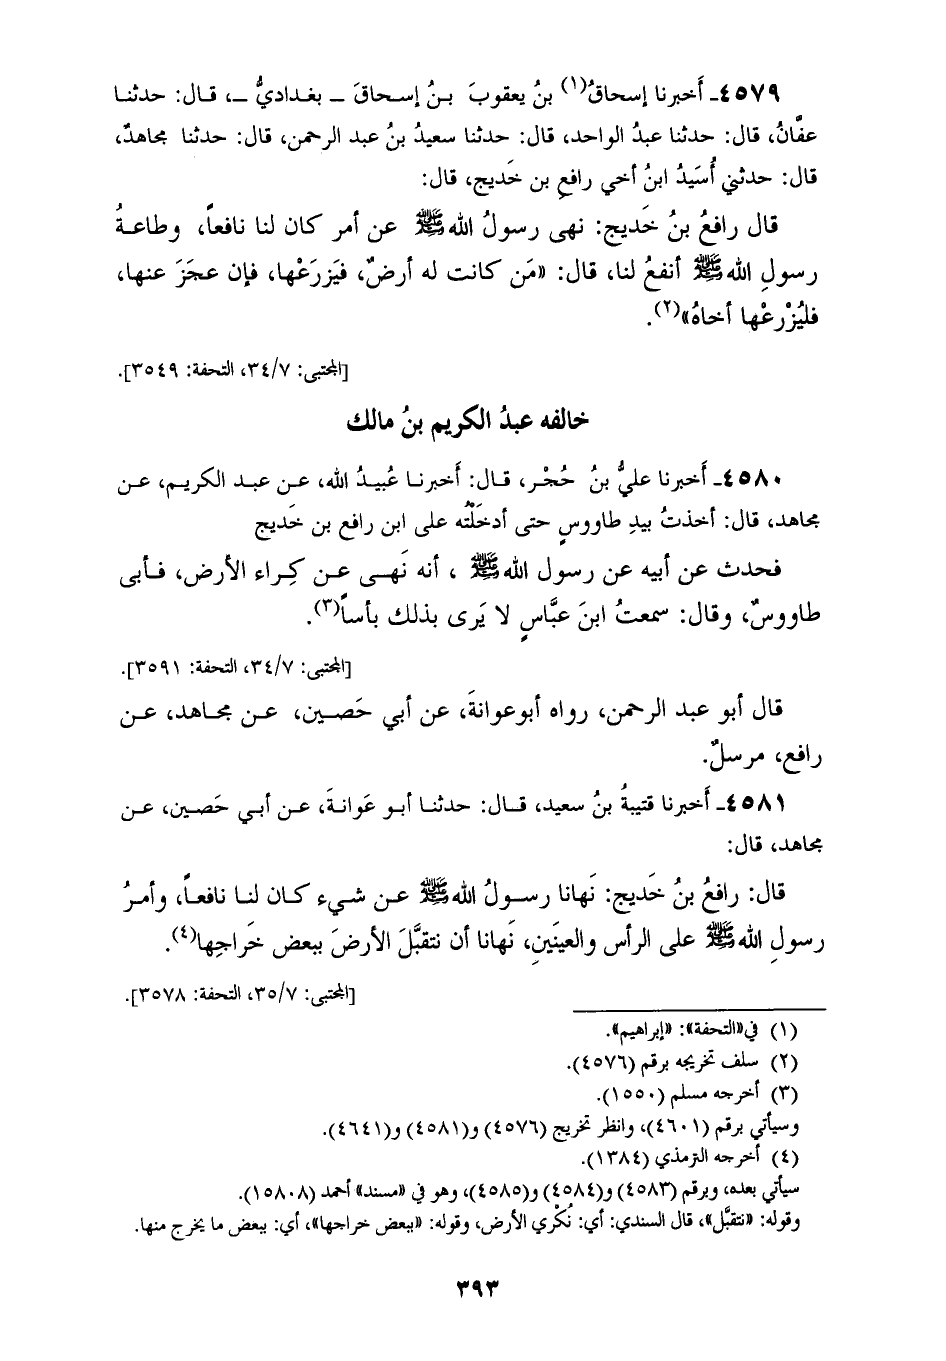 ٤٥٧٩ـ أَخبرنا إسحاقُ(١) بنُ يعقوبَ بنُ إسحاقَ ـ بغداديٌّ ـ، قال: حدثنا
عفَّانُ، قال: حدثنا عبدُ الواحد، قال: حدثنا سعيدُ بنُ عبد الرحمن، قال: حدثنا مجاهدٌ،
قال: حدثني أُسَيدُ ابنُ أخي رافعِ بن خَديج، قال:
قال رافعُ بنُ خَديج: نهى رسولُ اللهﷺ عن أمر كان لنا نافعاً، وطاعةُ
رسولِ اللهﷺ أنفعُ لنا، قال: «مَن كانت له أرضٌ، فيَزرَعْها، فإن عجَزَ عنها،
فليُزْرِعْها أخاهُ»(٢).
[المجتبى: ٣٤/٧، التحفة: ٣٥٤٩].
خالفه عبدُ الكريم بنُ مالك
٤٥٨٠ـ أَخبرنا عليُّ بنُ حُجْر، قال: أَخبرنا عُبيدُ الله، عن عبد الكريم، عن
مجاهد، قال: أخذتُ بيدِ طاووسٍ حتى أدخَلْتُه على ابن رافع بن خَديج
فحدث عن أبيه عن رسول اللهﷺ ، أنه نَهى عن كِراء الأرض، فأبى
طاووسٌ، وقال: سمعتُ ابنَ عبَّاسٍ لا يَرى بذلك بأساً(٣).
[المجتبى: ٣٤/٧، التحفة: ٣٥٩١].
قال أبو عبد الرحمن، رواه أبوعوانةَ، عن أبي حَصين، عن مجاهد، عن
رافع، مرسلٌ.
٤٥٨١ـ أَخبرنا قتيبةُ بنُ سعيد، قال: حدثنا أبو عَوانةَ، عن أبي حَصين، عن
مجاهد، قال:
قال: رافعُ بنُ خَديج: نَهانا رسولُ اللهﷺ عن شيء كان لنا نافعاً، وأمرُ
رسولِ اللهﷺ على الرأس والعينَينِ، نَهانا أن نتقبَّلَ الأرضَ ببعض خَراجِها(٤).
[المجتبى: ٣٥/٧، التحفة: ٣٥٧٨].
(١) في«التحفة»: «إبراهيم».
(٢) سلف تخريجه برقم (٤٥٧٦).
(٣) أخرجه مسلم (١٥٥٠).
وسيأتي برقم (٤٦٠١)، وانظر تخريج (٤٥٧٦) و(٤٥٨١) و(٤٦٤١).
(٤) أخرجه الترمذي (١٣٨٤).
سيأتي بعده، وبرقم (٤٥٨٣) و(٤٥٨٤) و(٤٥٨٥)، وهو في «مسند» أحمد (١٥٨٠٨).
وقوله: «نتقبَّل»، قال السندي: أي: نُكْري الأرض، وقوله: «ببعض خراجها»، أي: ببعض ما يخرج منها.
٣٩٣